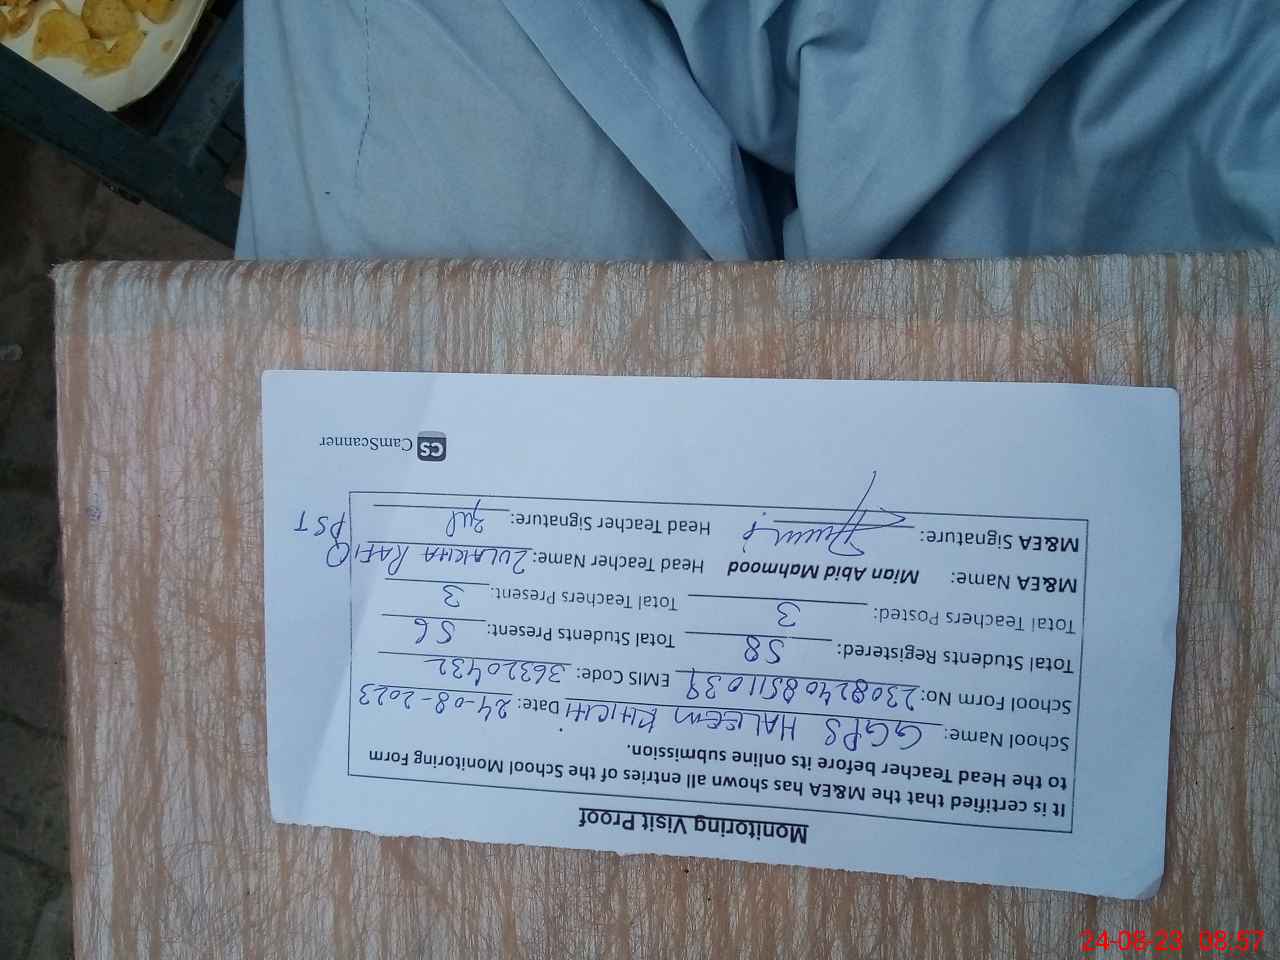 Monitoring Visit Proof
It is certified that the M&EA has shown all entries of the School Monitoring Form
to the Head Teacher before its online submission.
School Name: GGPS HALEEM KHICHI Date: 24-08-2023
School Form No: 23082408511039 EMIS Code: 36320432
Total Students Registered: 58 Total Students Present: 56
Total Teachers Posted: 3 Total Teachers Present: 3
M&EA Name: Mian Abid Mahmood Head Teacher Name: ZULAKHA RAFIQ
M&EA Signature: Head Teacher Signature: PST
CS CamScanner
24-08-23 08:57